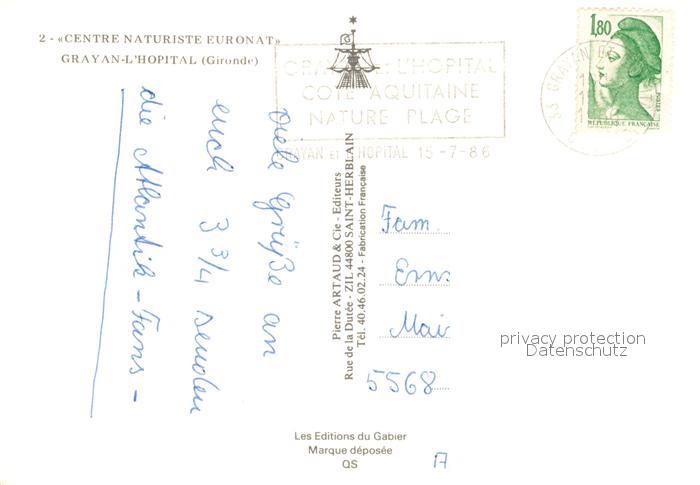 2 - «CENTRE NATURISTE EURONAT»
GRAYAN-L'HOPITAL (Gironde)
GRAYAN ET L'HOPITAL
COTE AQUITAINE
NATURE PLAGE
GRAYAN ET L'HOPITAL 15-7-86
33 GRAYAN
1,80
REPUBLIQUE FRANÇAISE
POSTES
Viele Grüße an
euch 3 3/4 senden
die Atlantik-Fans-
Pierre ARTAUD & Cie - Editeurs
Rue de la Dutée - ZIL 44800 SAINT-HERBLAIN
Tél. 40.46.02.24 - Fabrication Française
Fam.
5568
privacy protection
Datenschutz
Les Editions du Gabier
Marque déposée
QS
A